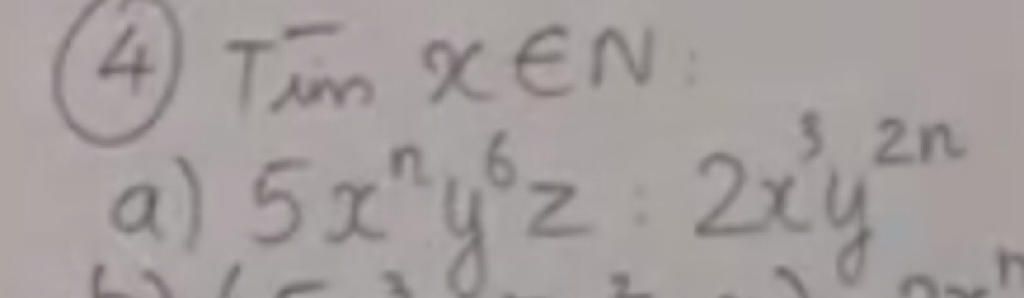 ④ Tìm x ∈ N:
a) 5xⁿy⁶z : 2x³y²ⁿ